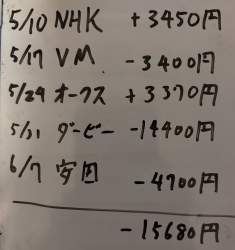 5/10 NHK +3450円
5/17 VM -3400円
5/24 オークス +3370円
5/31 ダービー -14400円
6/7 安田 -4700円
-15680円